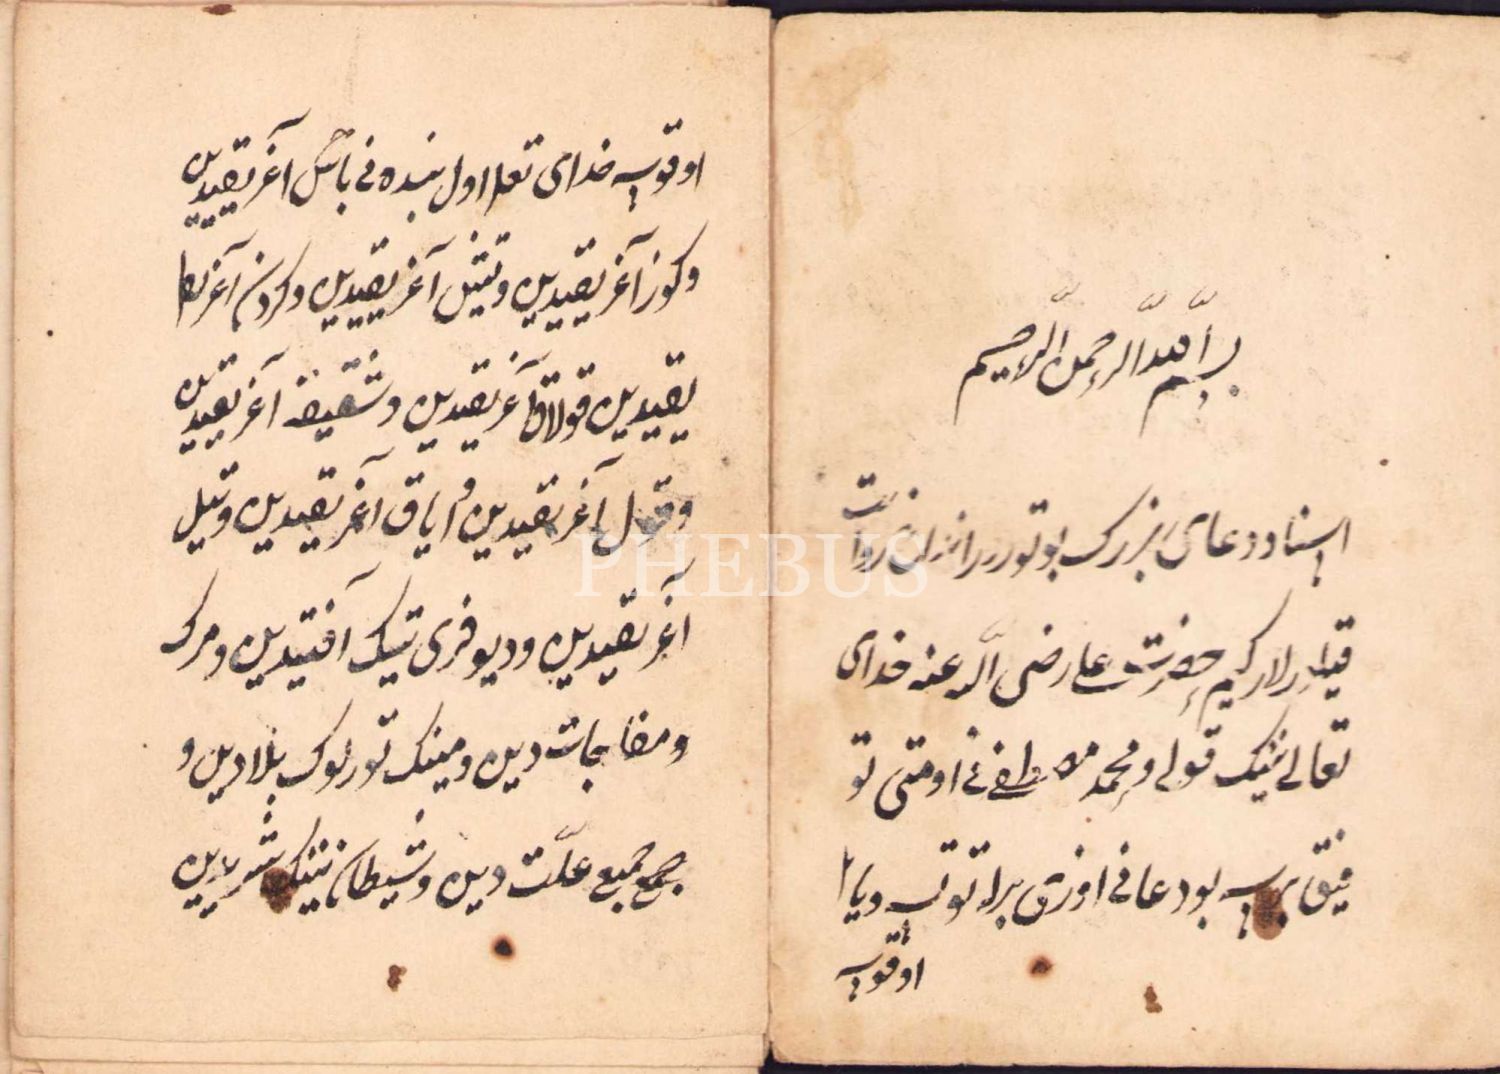 بسم الله الرحمن الرحيم
اسناد دعای بزرک بو تورور اندان روایت
قیلورلار کیم حضرت علی رضی الله عنه خدای
تعالی نینک قولی و محمد مصطفی نی اومتی تو
فیق بیریب بو دعانی اوزی برلا توتب ویا
اوقوب
اوقوب خدای تعالی اول بنده نی باش آغریقیدین
وکوز آغریقیدین وتیش آغریقیدین و کردن آغریقا
یقیدین قولاق آغریقیدین و شقیقه آغریقیدین
وقول آغریقیدین و ایاق آغریقیدین وتیل
آغریقیدین ودیو فری نینک آفتیدین ومرک
ومفاجات دین ومینک تورلوک بلادین و
جمع جمیع علت دین وشیطان نینک شریدین
PHEBUS